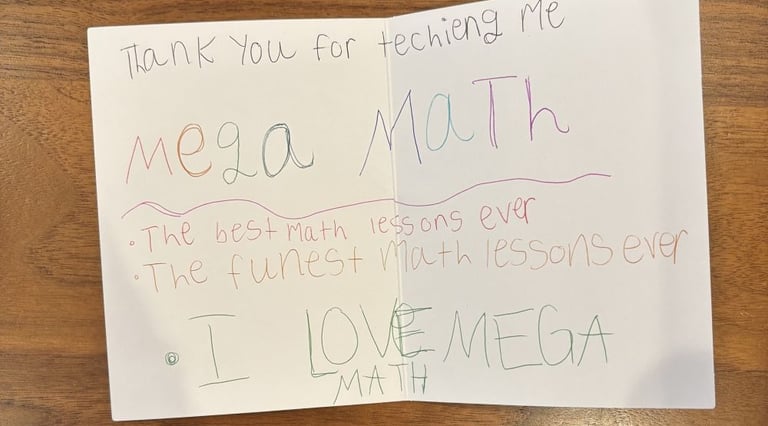 Thank You for techieng Me
Mega Math
• The best math lessons ever
• The funest math lessons ever
• I LOVE MEGA
MATH